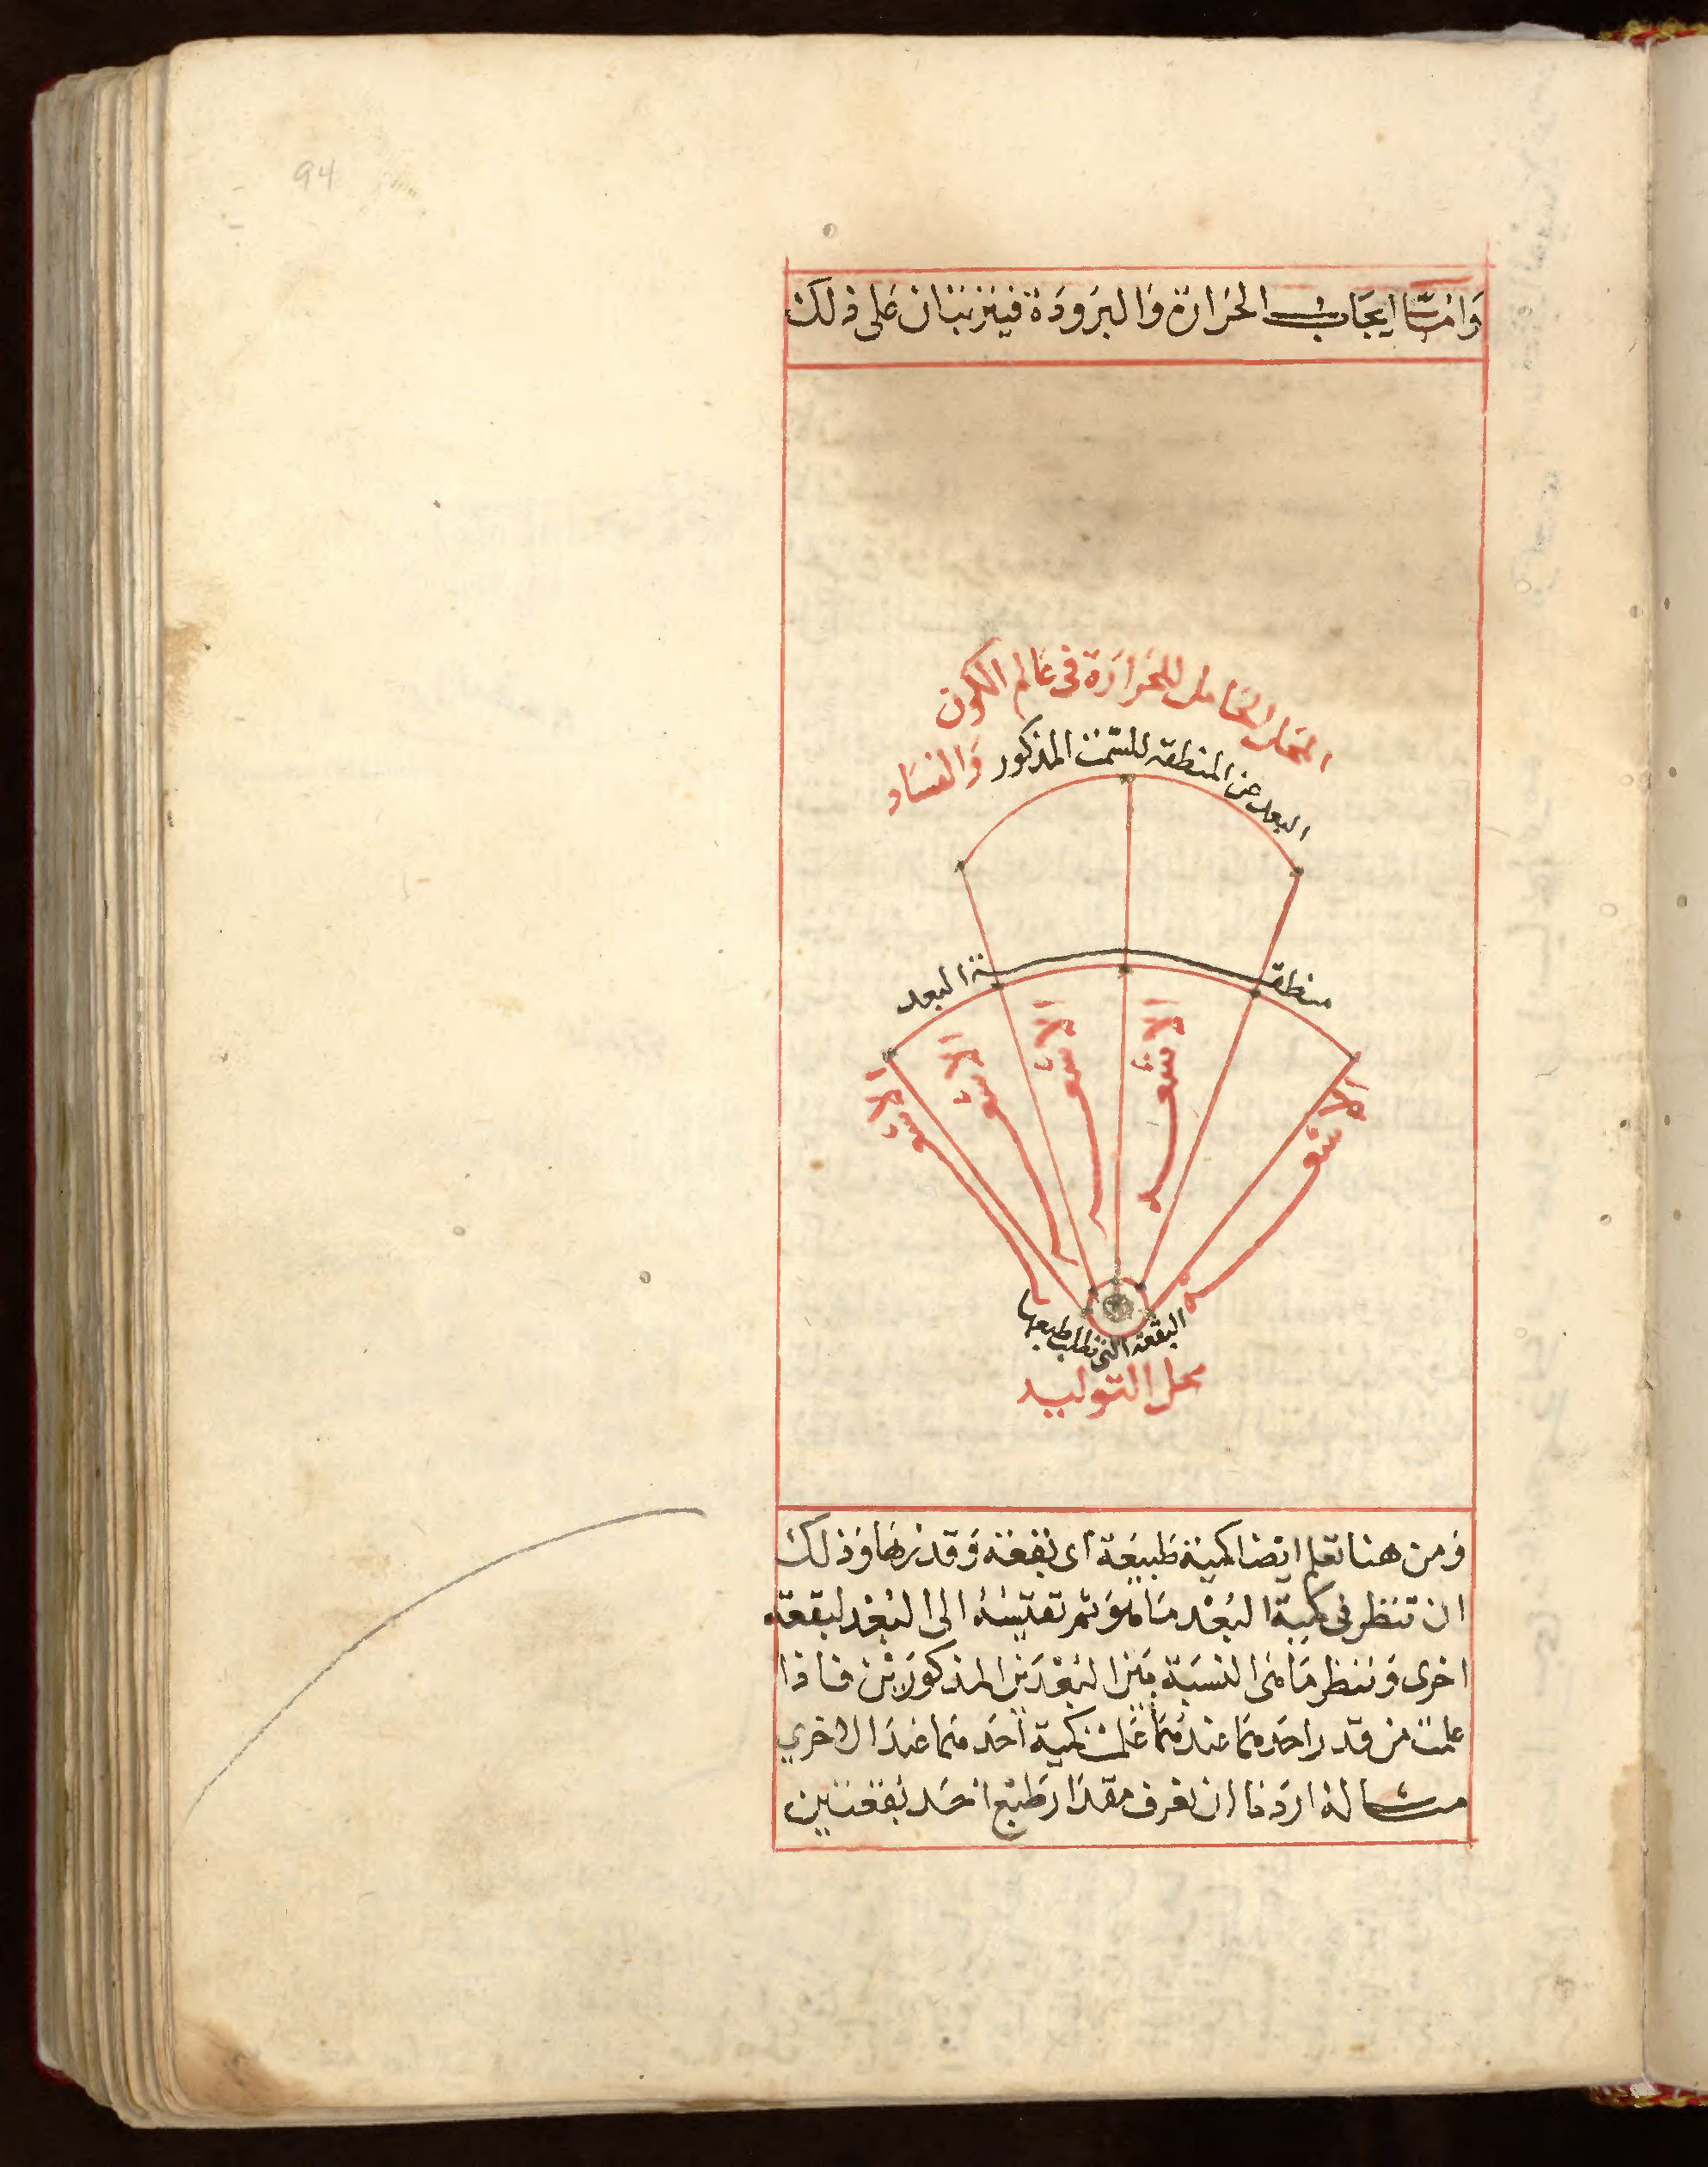 94
وَامّا ايجَاب الحَرارة وَالبرَودَة فيتَرتبَان عَلى ذلك
المحَل الحَامل للحَرارَة فى عَالم الكون
وَالفسَاد
البعد عن المنطقة للسّمت المذكور
منطقة البعد
الاشعه
الاشعه
الاشعه
الاشعه
الاشعه
البقعة التى تطلب طبعها
محل التوليد
وَمن هنا تعلم ايضا كمية طَبيعَة اى بقعة وَقدرهَا وَذلك
ان تنظر فى كمية البُعْد مَا هوَ ثم تقيسُهُ الى البُعْد لبقعة
اخرى وَتنظر مَا هىَ النسبَة بَين البُعْدَين المذكورَين فاذا
علمت من قدر احَدهمَا عندهمَا عَلمت كمية احَدهمَا عندَ الاخرى
مسالة اردَنا ان نعرف مقدَار طَبْع احَد بقعتين